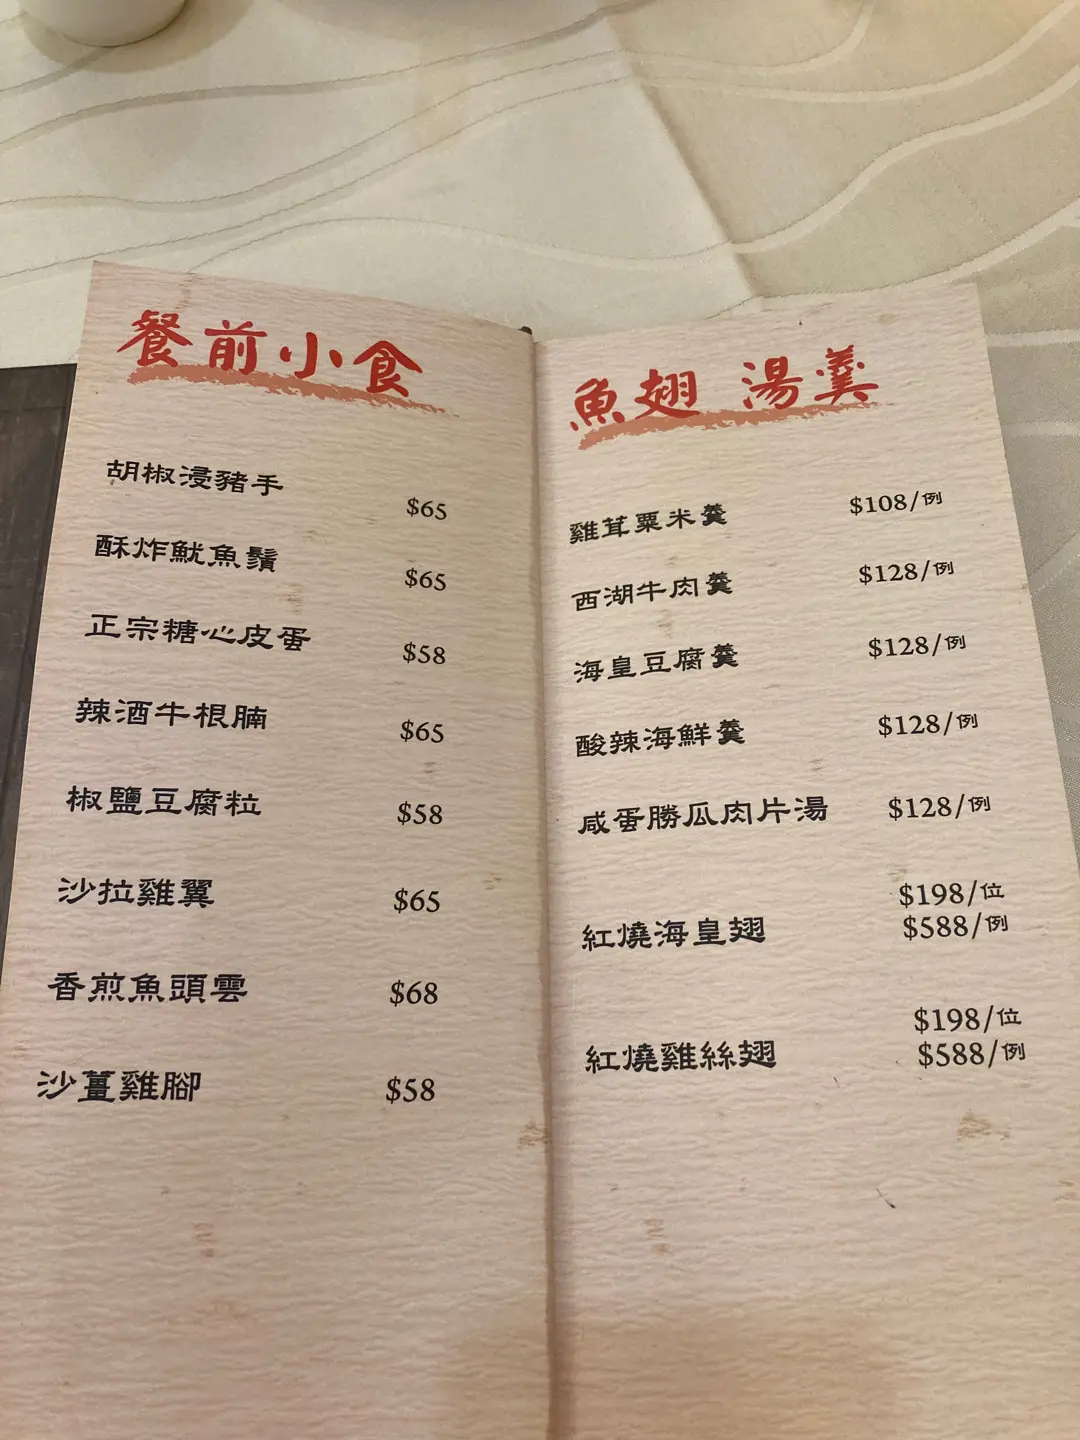 餐前小食
胡椒浸豬手 $65
酥炸魷魚鬚 $65
正宗糖心皮蛋 $58
辣酒牛根腩 $65
椒鹽豆腐粒 $58
沙拉雞翼 $65
香煎魚頭雲 $68
沙薑雞腳 $58
魚翅 湯羹
雞茸粟米羹 $108/例
西湖牛肉羹 $128/例
海皇豆腐羹 $128/例
酸辣海鮮羹 $128/例
咸蛋勝瓜肉片湯 $128/例
紅燒海皇翅 $198/位
$588/例
紅燒雞絲翅 $198/位
$588/例